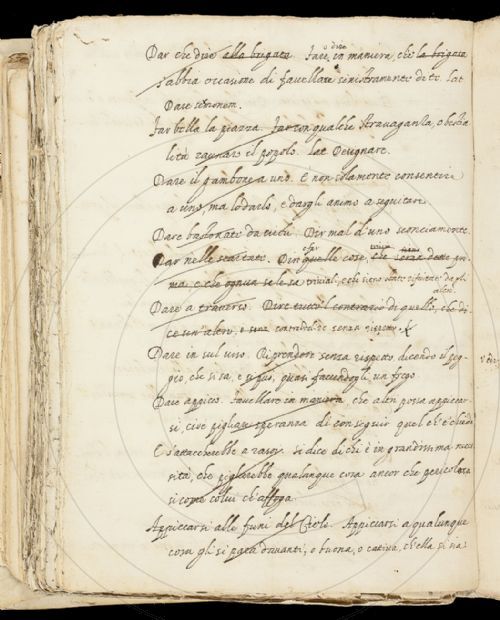 Dar che dire alla brigata. Fare, o dire in maniera, che la brigata
abbia occasione di favellare sinistramente di te. Lat.
Dare sermonem.
Far bella la piazza. Far con qualche stravaganza, o bestia
lità raunare il popolo. Lat.
Dare il gambone a uno. È non solamente consentire
a uno, ma lodarlo, e dargli animo a seguitare
Dare bastonate da ciechi. Dir mal d'uno sconciamente.
Dar nelle scartate. Dir quelle cose, che
ma, e che ognun se le sa
altri.
Dare a traverso. Dire tutto il contrario di quello, che di
ce un altro, e contradire senza rispetto
Dare in sul viso. Riprendere senza rispetto dicendo il peg
gio, che si sa, e si può, quasi facendogli un frego
Dare appicco. Favellare in maniera, che altri possa appiccar
si, cioè pigliar speranza di conseguir quel ch'e' chiede
E' s'attaccherebbe a' rasoi. si dice di chi è in grandissima neces
sità, che piglierebbe qualunque cosa ancor che pericolosa
si come colui ch'affoga
Appiccarsi alle funi del Cielo. Appiccarsi a qualunque
cosa gli si para davanti, o buona, o cattiva, ch'ella si sia